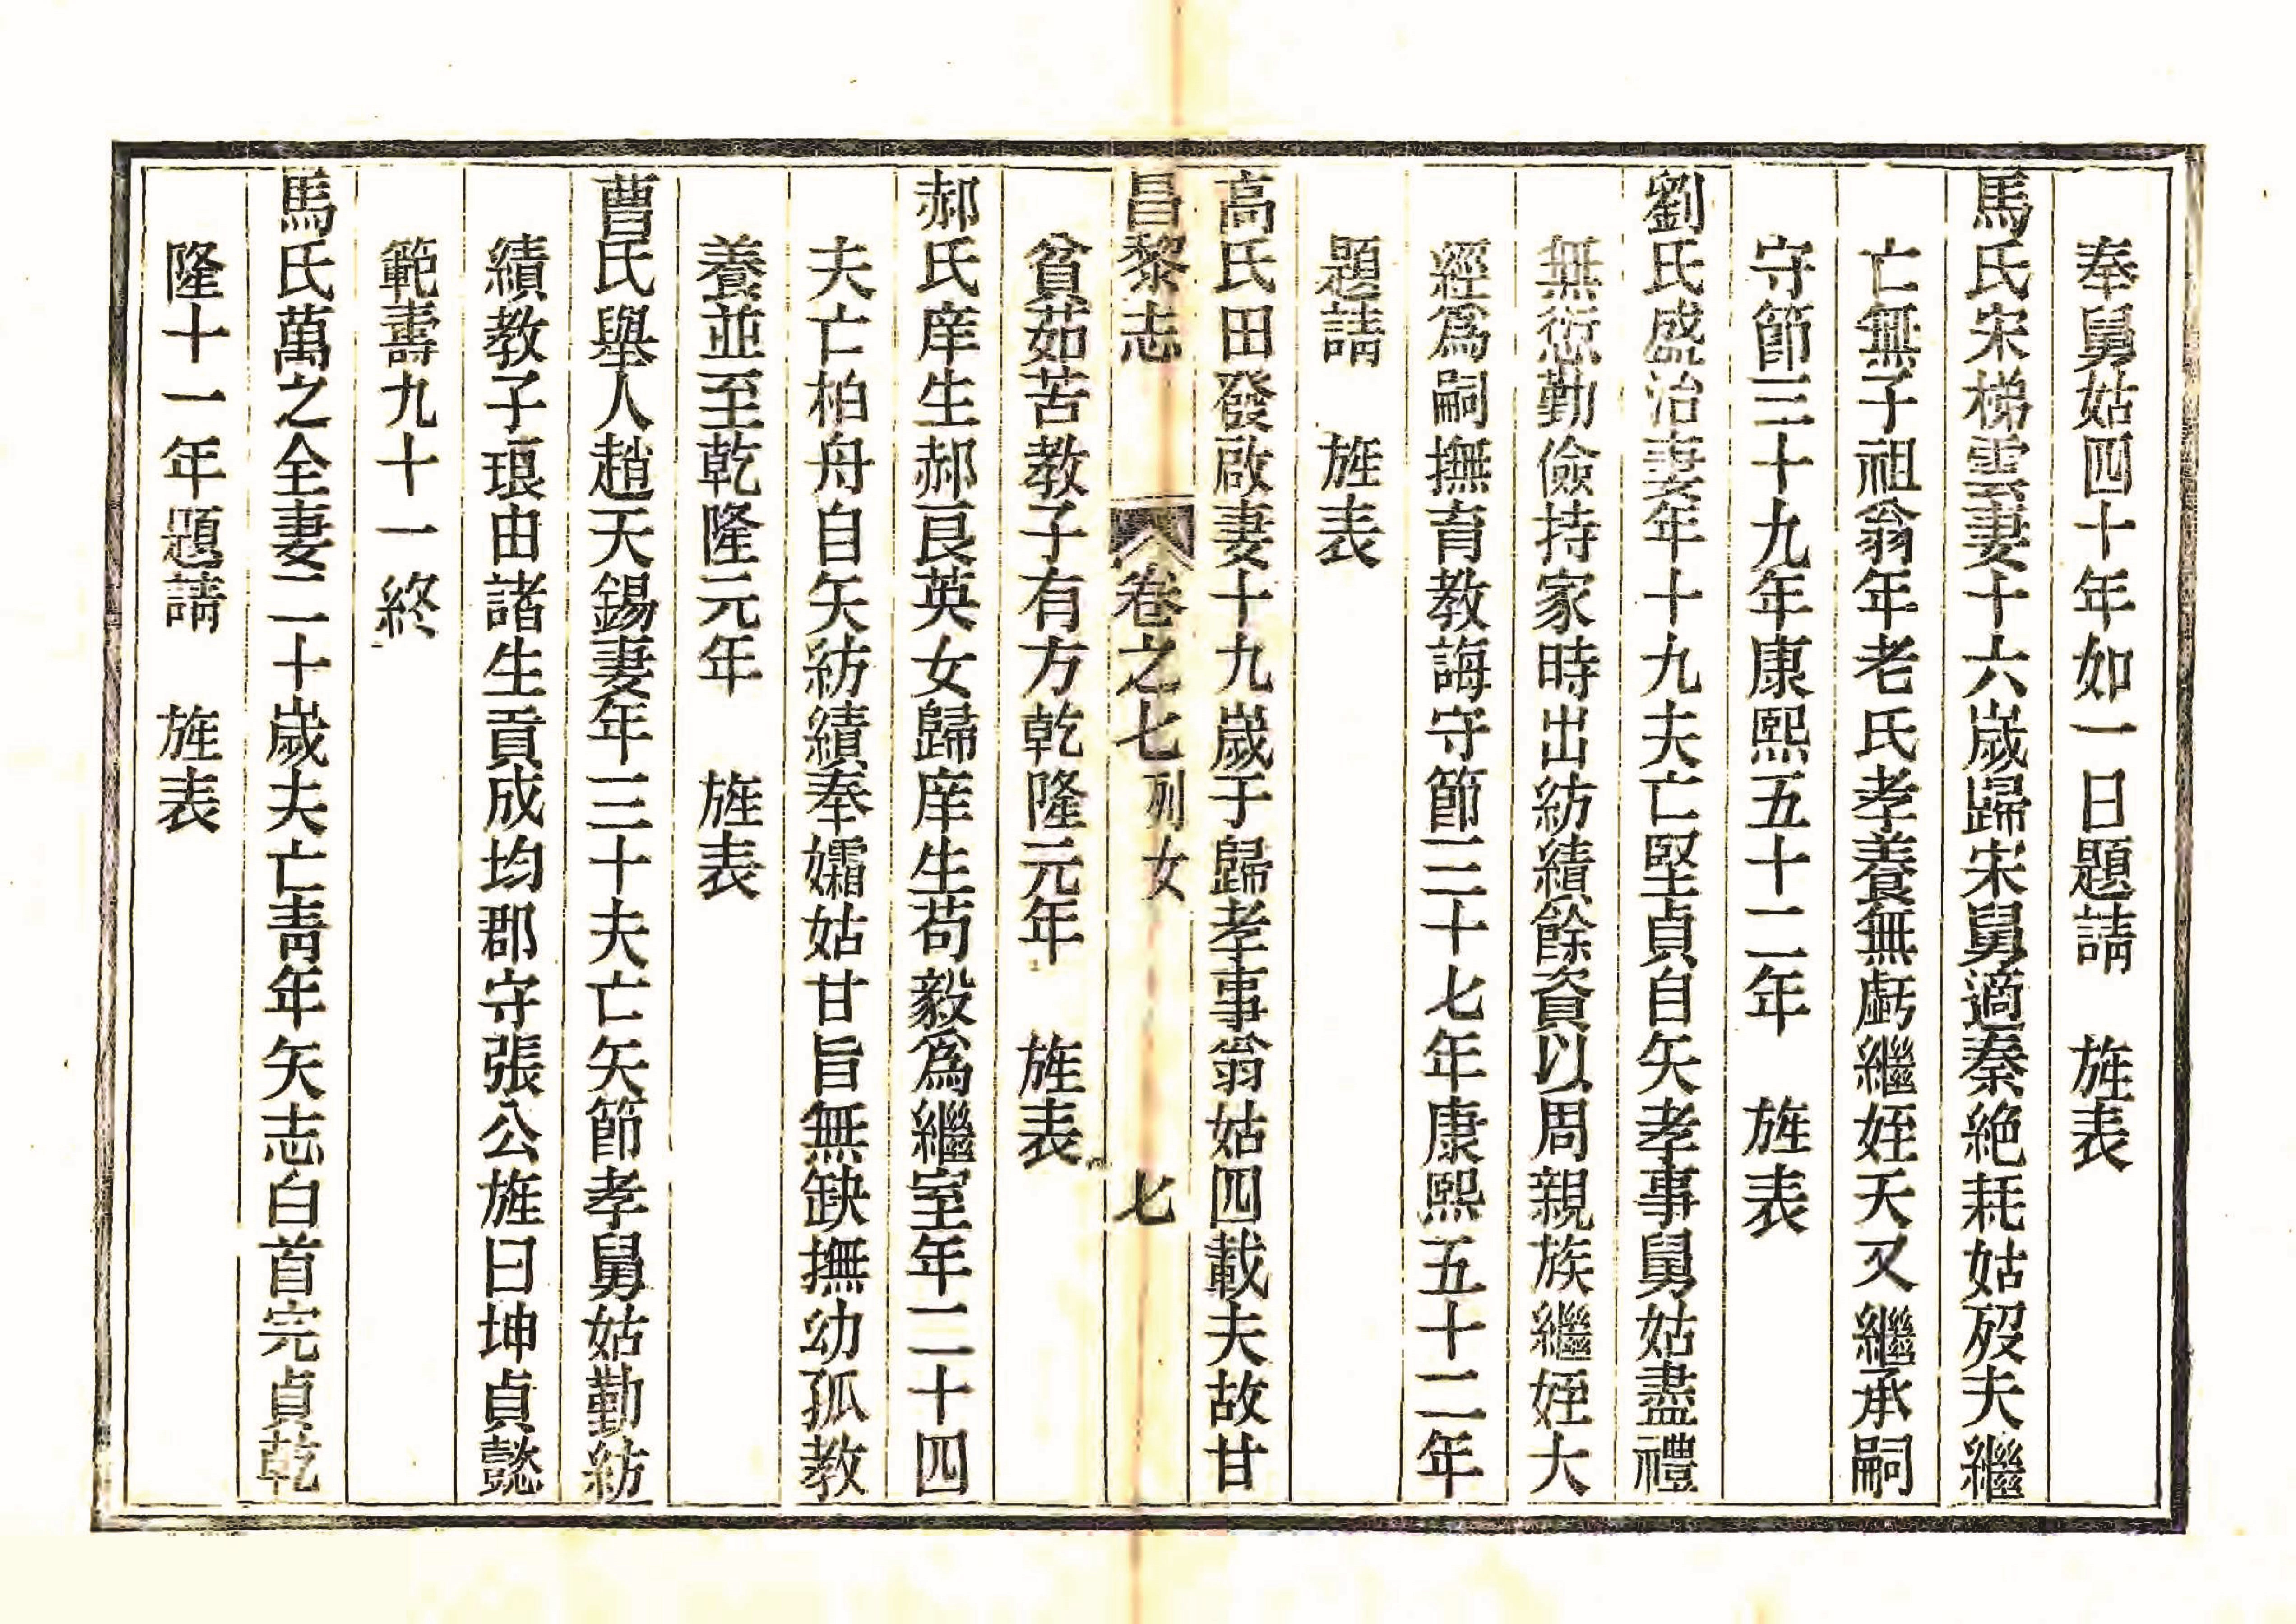 奉舅姑四十年如一日題請　旌表
馬氏宋梯雲妻十六歲歸宋舅適秦絶耗姑歿夫繼
亡無子祖翁年老氏孝養無虧繼姪夭又繼承嗣
守節三十九年康熙五十二年　旌表
劉氏盛治妻年十九夫亡堅貞自矢孝事舅姑盡禮
無愆勤儉持家時出紡績餘資以周親族繼姪大
經爲嗣撫育教誨守節三十七年康熙五十二年
題請　旌表
高氏田發啟妻十九歲于歸孝事翁姑四載夫故甘
昌黎志　卷之七列女　七
貧茹苦教子有方乾隆元年　旌表
郝氏庠生郝艮英女歸庠生苟毅爲繼室年二十四
夫亡柏舟自矢紡績奉孀姑甘旨無缺撫幼孤教
養並至乾隆元年　旌表
曹氏舉人趙天錫妻年三十夫亡矢節孝舅姑勤紡
績教子琅由諸生貢成均郡守張公旌曰坤貞懿
範壽九十一終
馬氏萬之全妻二十歲夫亡靑年矢志白首完貞乾
隆十一年題請　旌表